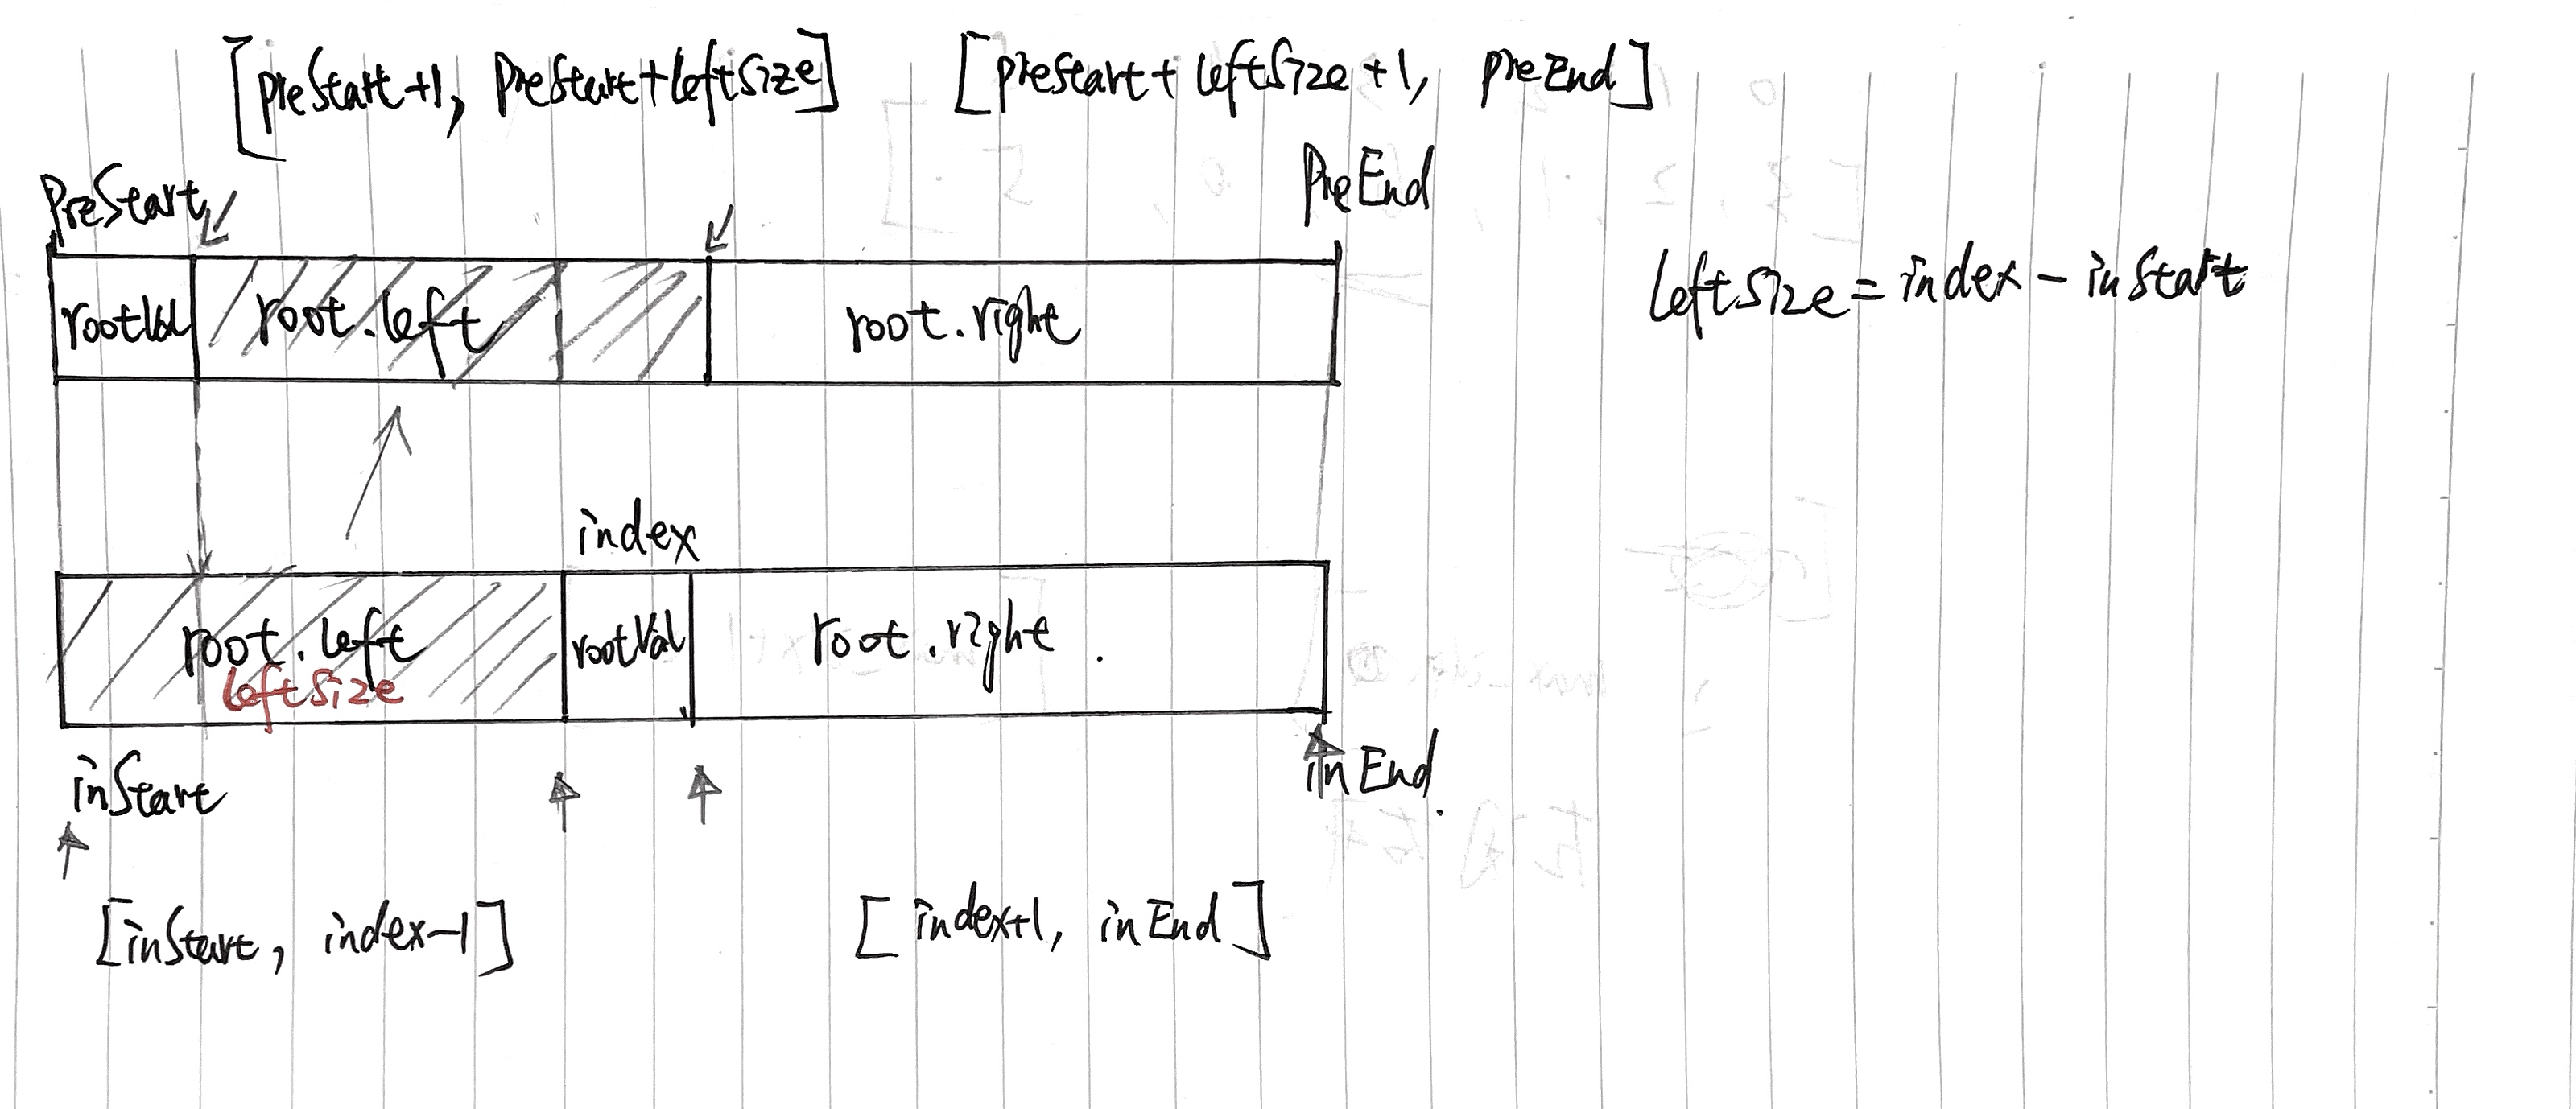 [preStart+1, preStart+leftSize] [preStart+leftSize+1, preEnd]
preStart preEnd
rootVal root.left root.right
leftSize = index - inStart
index
root.left rootVal root.right.
leftSize
inStart inEnd.
[inStart, index-1] [index+1, inEnd]